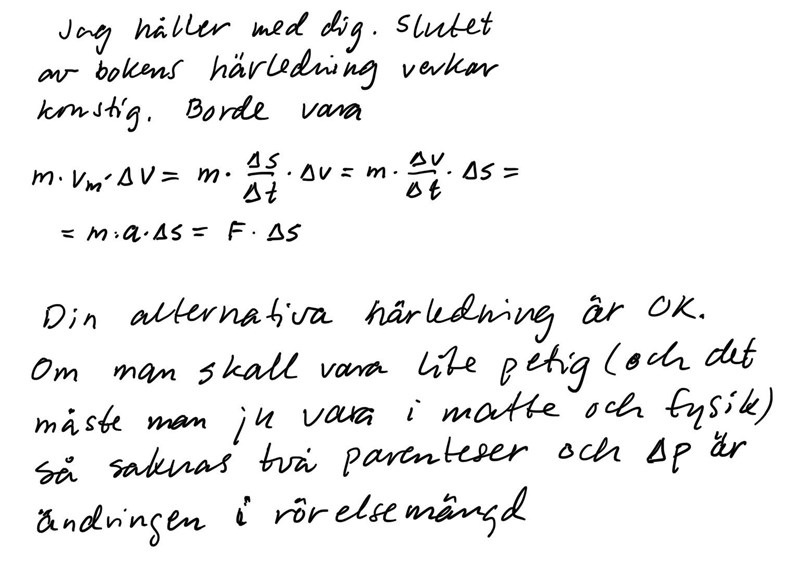 Jag håller med dig. Slutet
av bokens härledning verkar
konstig. Borde vara
m · v_m · Δv = m · Δs/Δt · Δv = m · Δv/Δt · Δs =
= m · a · Δs = F · Δs
Din alternativa härledning är OK.
Om man skall vara lite petig (och det
måste man ju vara i matte och fysik)
så saknas två parenteser och Δp är
ändringen i rörelsemängd